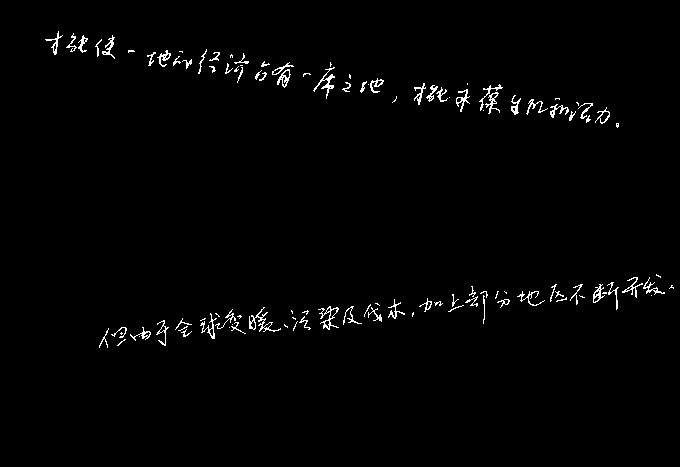 才能使一地的经济占有一席之地，才能永葆生机和活力。
但由于全球变暖、污染及伐木，加上部分地区不断开发。